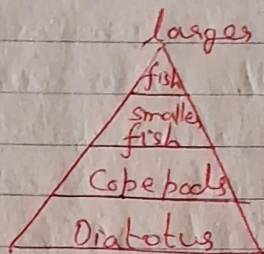 larges
fish
smalles
fish
Copepods
Diatotus